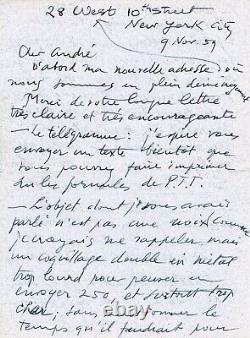 28 West 10th Street
New York City
9 Nov. 59
Cher André
D'abord ma nouvelle adresse où
nous sommes en plein déménagement
Merci de votre longue lettre
très claire et très encourageante
- Le télégramme: j'espère vous
envoyer un texte bientôt que
vous pourrez faire imprimer
sur les formules de P.T.T.
- L'objet dont je vous avais
parlé n'est pas une noix comme
je croyais me rappeler mais
un coquillage double en métal
trop lourd pour penser en
envoyer 250, et surtout trop
cher; sans
temps qu'il faudrait pour